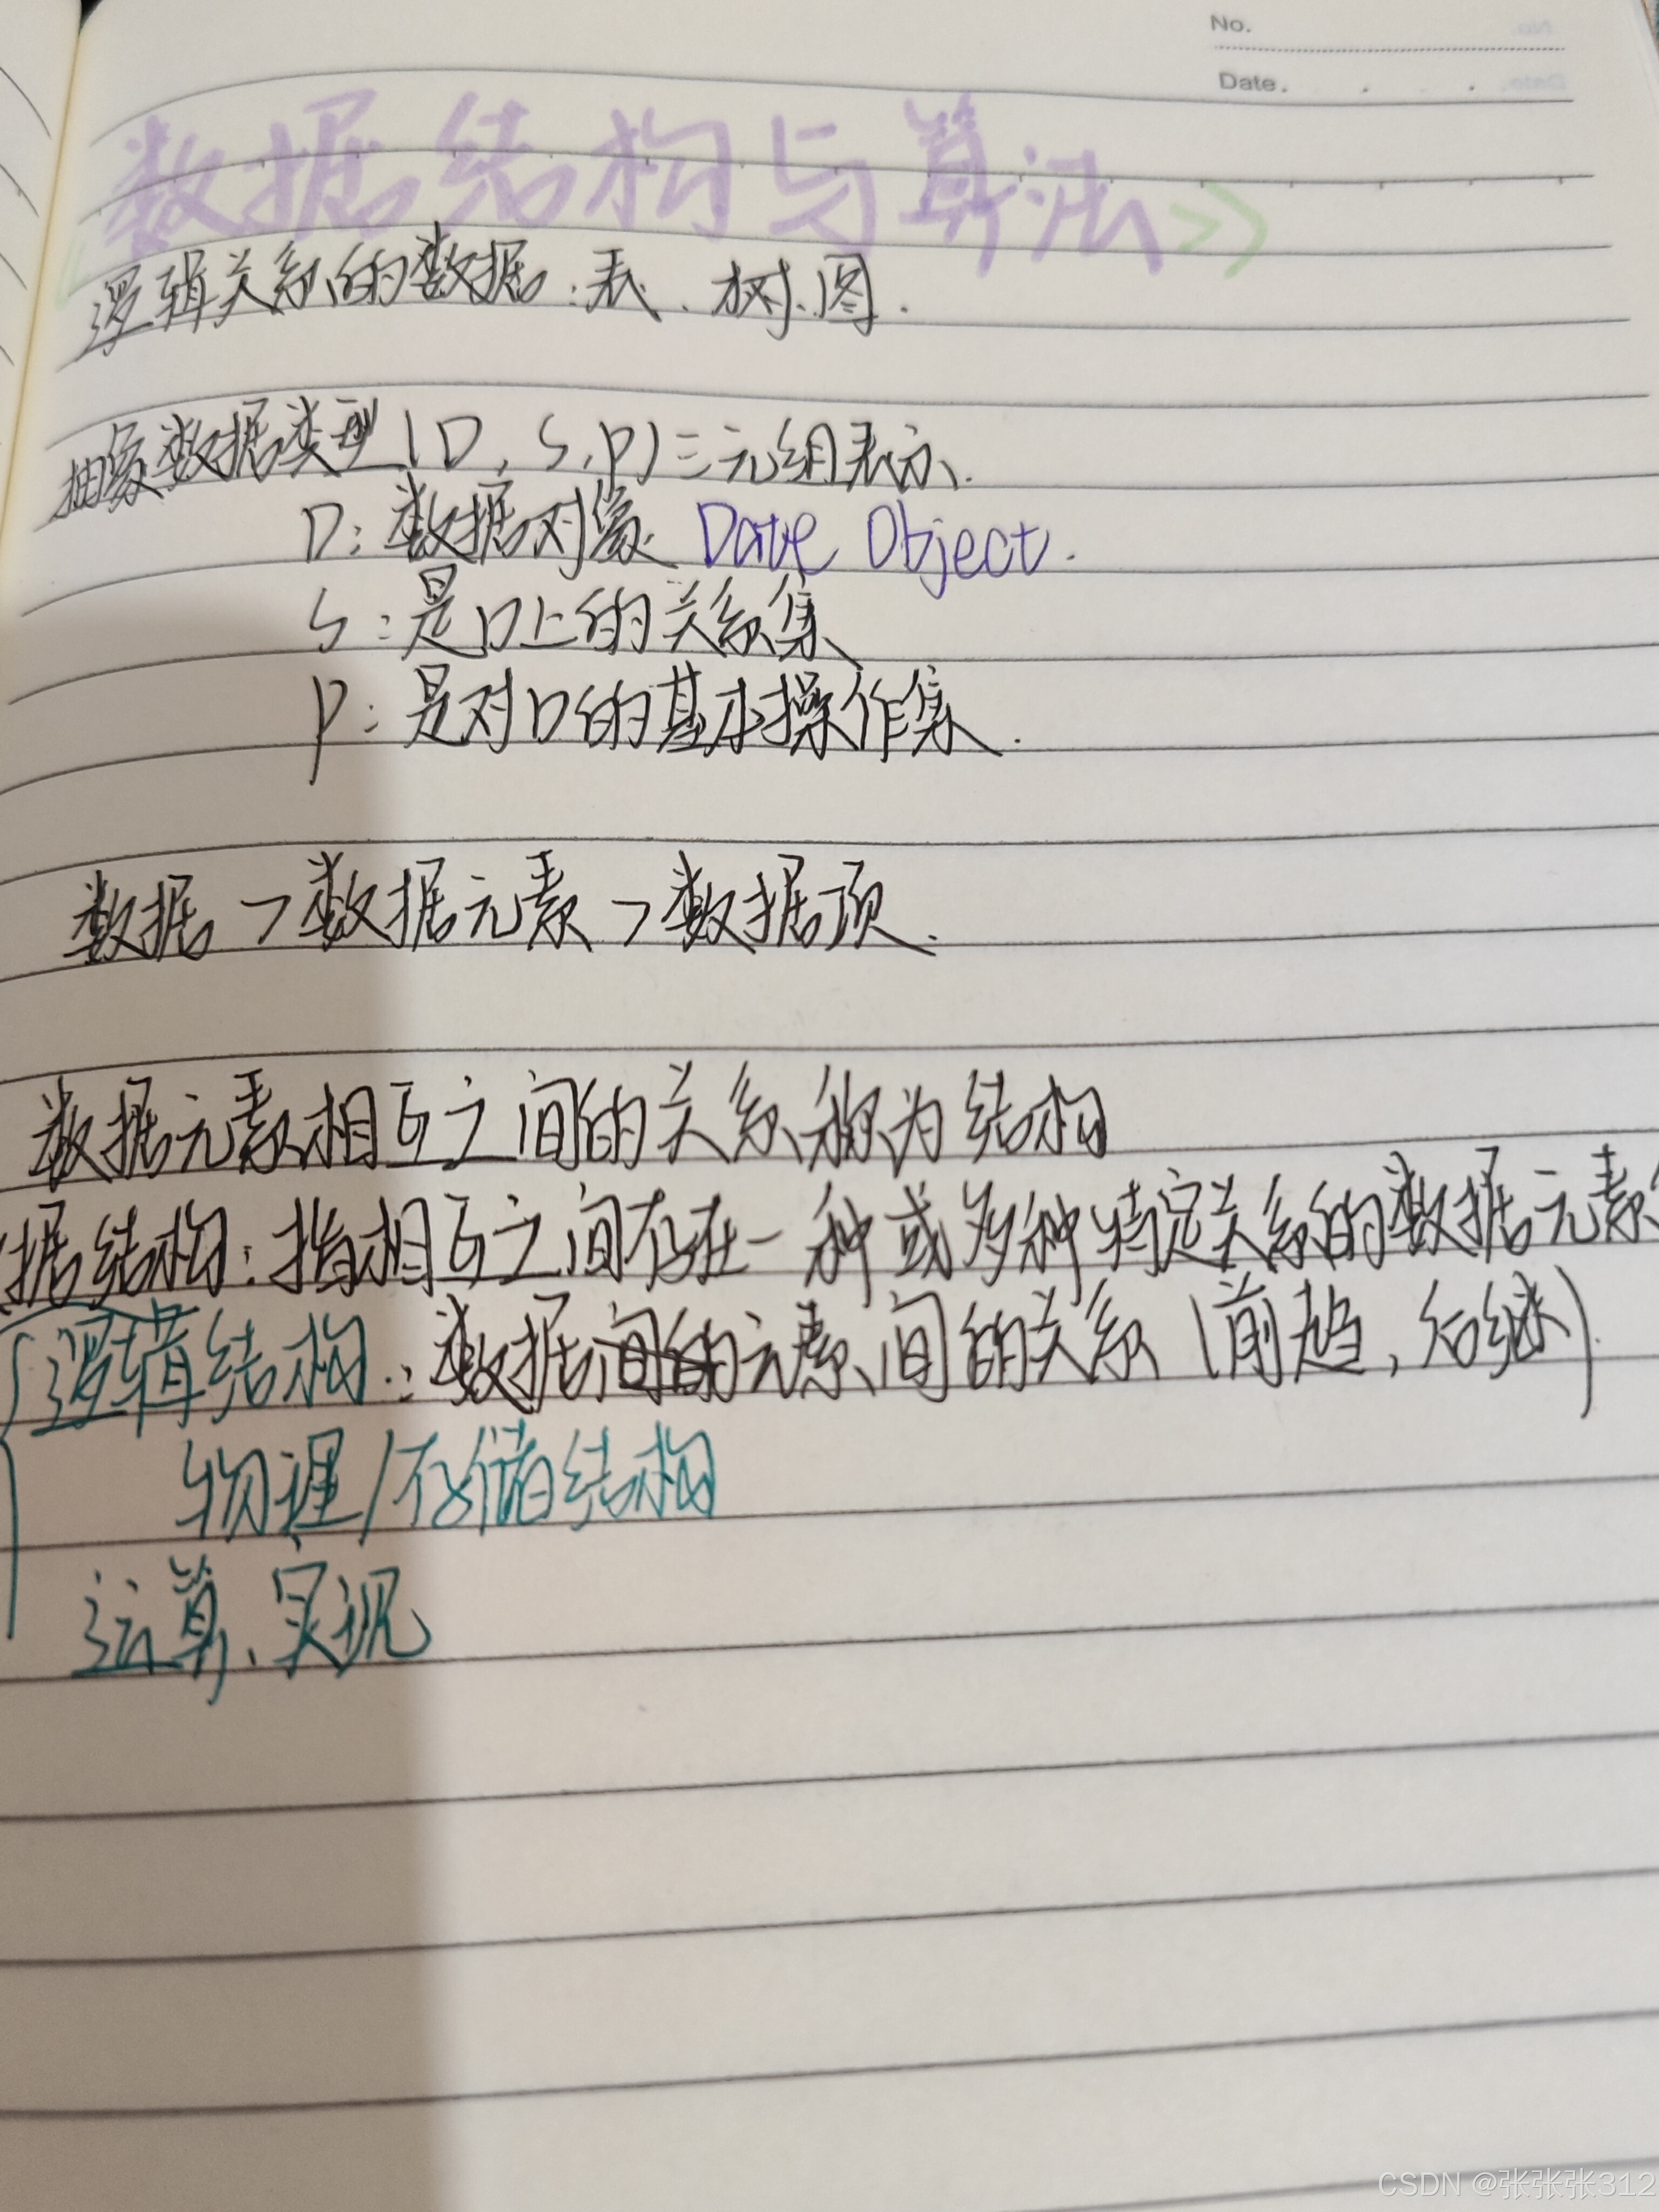 No.
Date.
《数据结构与算法》
逻辑关系的数据:表、树、图.
抽象数据类型(D,S,P)三元组表示.
D:数据对象 Date Object.
S:是D上的关系集
P:是对D的基本操作集.
数据>数据元素>数据项.
数据元素相互之间的关系称为结构
据结构:指相互之间存在一种或多种特定关系的数据元素
逻辑结构:数据元素间的关系(前趋,后继).
物理/存储结构
运算、实现
CSDN @张张张312